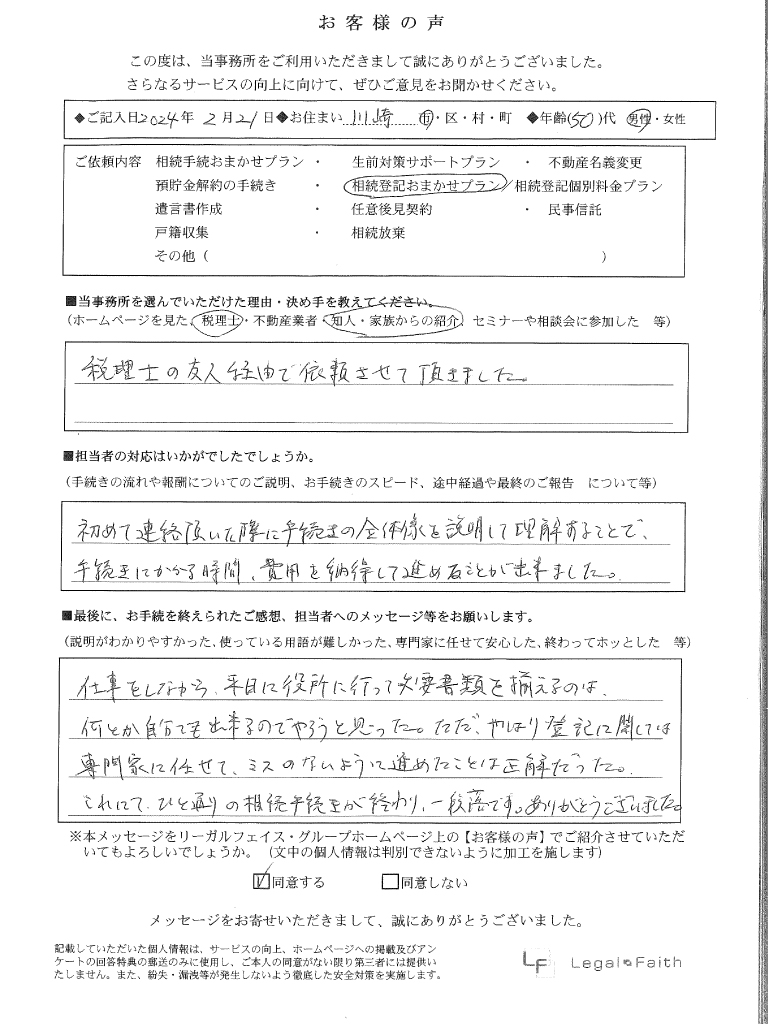 お客様の声
この度は、当事務所をご利用いただきまして誠にありがとうございました。
さらなるサービスの向上に向けて、ぜひご意見をお聞かせください。
◆ご記入日2024年 2月21日◆お住まい 川崎 市・区・村・町 ◆年齢(50)代 男性・女性
ご依頼内容 相続手続おまかせプラン ・ 生前対策サポートプラン ・ 不動産名義変更
預貯金解約の手続き ・ 相続登記おまかせプラン/相続登記個別料金プラン
遺言書作成 ・ 任意後見契約 ・ 民事信託
戸籍収集 ・ 相続放棄
その他( )
■当事務所を選んでいただけた理由・決め手を教えてください。
(ホームページを見た、税理士・不動産業者・知人・家族からの紹介、セミナーや相談会に参加した 等)
税理士の友人経由で依頼させて頂きました。
■担当者の対応はいかがでしたでしょうか。
(手続きの流れや報酬についてのご説明、お手続きのスピード、途中経過や最終のご報告 について等)
初めて連絡頂いた際に手続きの全体像を説明して理解することで、
手続きにかかる時間、費用を納得して進めることが出来ました。
■最後に、お手続を終えられたご感想、担当者へのメッセージ等をお願いします。
(説明がわかりやすかった、使っている用語が難しかった、専門家に任せて安心した、終わってホッとした 等)
仕事をしながら、平日に役所に行って必要書類を揃えるのは、
何とか自分でも出来るのでやろうと思った。ただ、やはり登記に関しては
専門家に任せて、ミスのないように進めたことは正解だった。
これにて、ひと通りの相続手続きが終わり、一段落です。ありがとうございました。
※本メッセージをリーガルフェイス・グループホームページ上の【お客様の声】でご紹介させていただ
いてもよろしいでしょうか。(文中の個人情報は判別できないように加工を施します)
☑同意する □同意しない
メッセージをお寄せいただきまして、誠にありがとうございました。
記載していただいた個人情報は、サービスの向上、ホームページへの掲載及びアン
ケートの回答特典の郵送のみに使用し、ご本人の同意がない限り第三者には提供い
たしません。また、紛失・漏洩等が発生しないよう徹底した安全対策を実施します。
LF Legal Faith